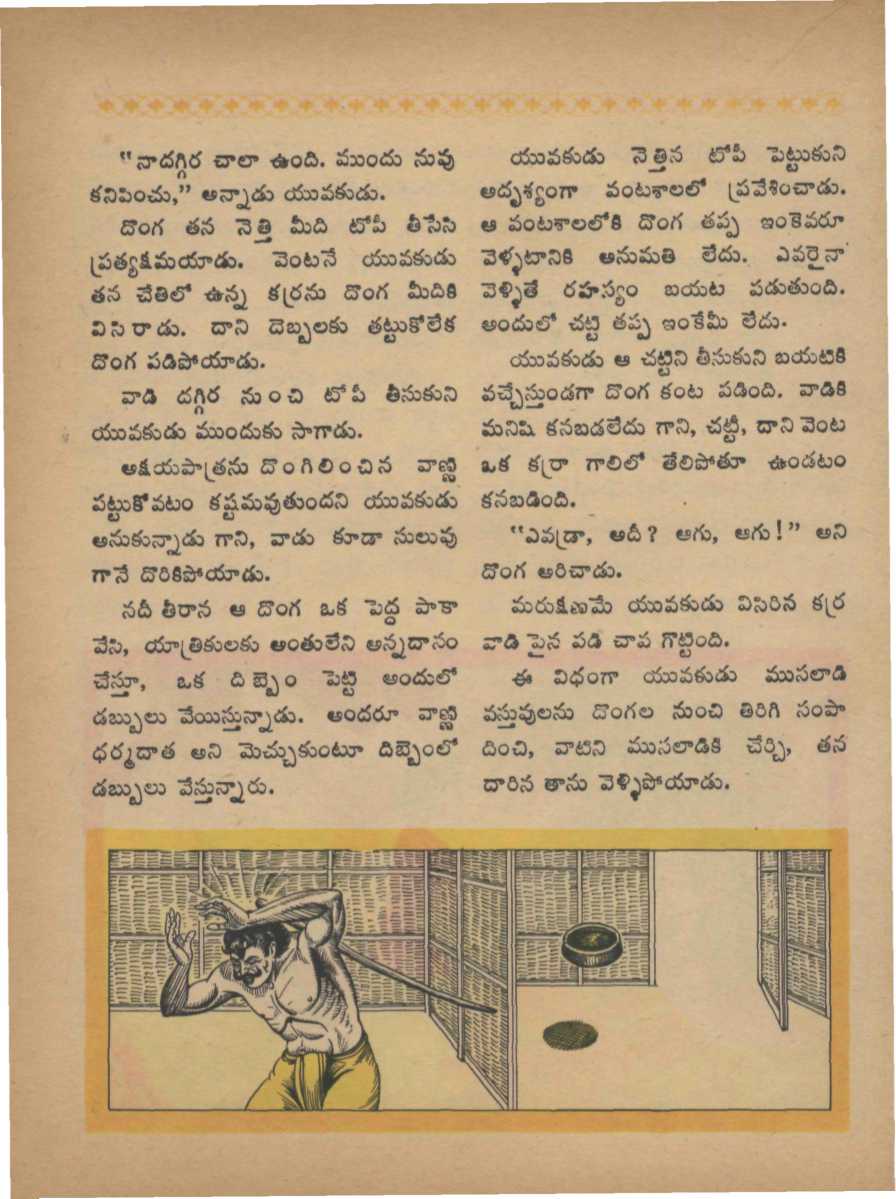 "నాదగ్గిర చాలా ఉంది. ముందు నువు
కనిపించు," అన్నాడు యువకుడు.
దొంగ తన నెత్తి మీది టోపీ తీసేసి
ప్రత్యక్షమయాడు. వెంటనే యువకుడు
తన చేతిలో ఉన్న కర్రను దొంగ మీదికి
విసిరాడు. దాని దెబ్బలకు తట్టుకోలేక
దొంగ పడిపోయాడు.
వాడి దగ్గిర నుంచి టోపీ తీసుకుని
యువకుడు ముందుకు సాగాడు.
అక్షయపాత్రను దొంగిలించిన వాణ్ణి
పట్టుకోవటం కష్టమవుతుందని యువకుడు
అనుకున్నాడు గాని, వాడు కూడా సులువు
గానే దొరికిపోయాడు.
నదీ తీరాన ఆ దొంగ ఒక పెద్ద పాకా
వేసి, యాత్రికులకు అంతులేని అన్నదానం
చేస్తూ, ఒక దిబ్బెం పెట్టి అందులో
డబ్బులు వేయిస్తున్నాడు. అందరూ వాణ్ణి
ధర్మదాత అని మెచ్చుకుంటూ దిబ్బెంలో
డబ్బులు వేస్తున్నారు.
యువకుడు నెత్తిన టోపీ పెట్టుకుని
అదృశ్యంగా వంటశాలలో ప్రవేశించాడు.
ఆ వంటశాలలోకి దొంగ తప్ప ఇంకెవరూ
వెళ్ళటానికి అనుమతి లేదు. ఎవరైనా
వెళ్ళితే రహస్యం బయట పడుతుంది.
అందులో చట్టి తప్ప ఇంకేమీ లేదు.
యువకుడు ఆ చట్టిని తీసుకుని బయటికి
వచ్చేస్తుండగా దొంగ కంట పడింది. వాడికి
మనిషి కనబడలేదు గాని, చట్టీ, దాని వెంట
ఒక కర్రా గాలిలో తేలిపోతూ ఉండటం
కనబడింది.
"ఎవడ్రా, అదీ? ఆగు, ఆగు!" అని
దొంగ అరిచాడు.
మరుక్షణమే యువకుడు విసిరిన కర్ర
వాడి పైన పడి చాప గొట్టింది.
ఈ విధంగా యువకుడు ముసలాడి
వస్తువులను దొంగల నుంచి తిరిగి సంపా
దించి, వాటిని ముసలాడికి చేర్చి, తన
దారిన తాను వెళ్ళిపోయాడు.